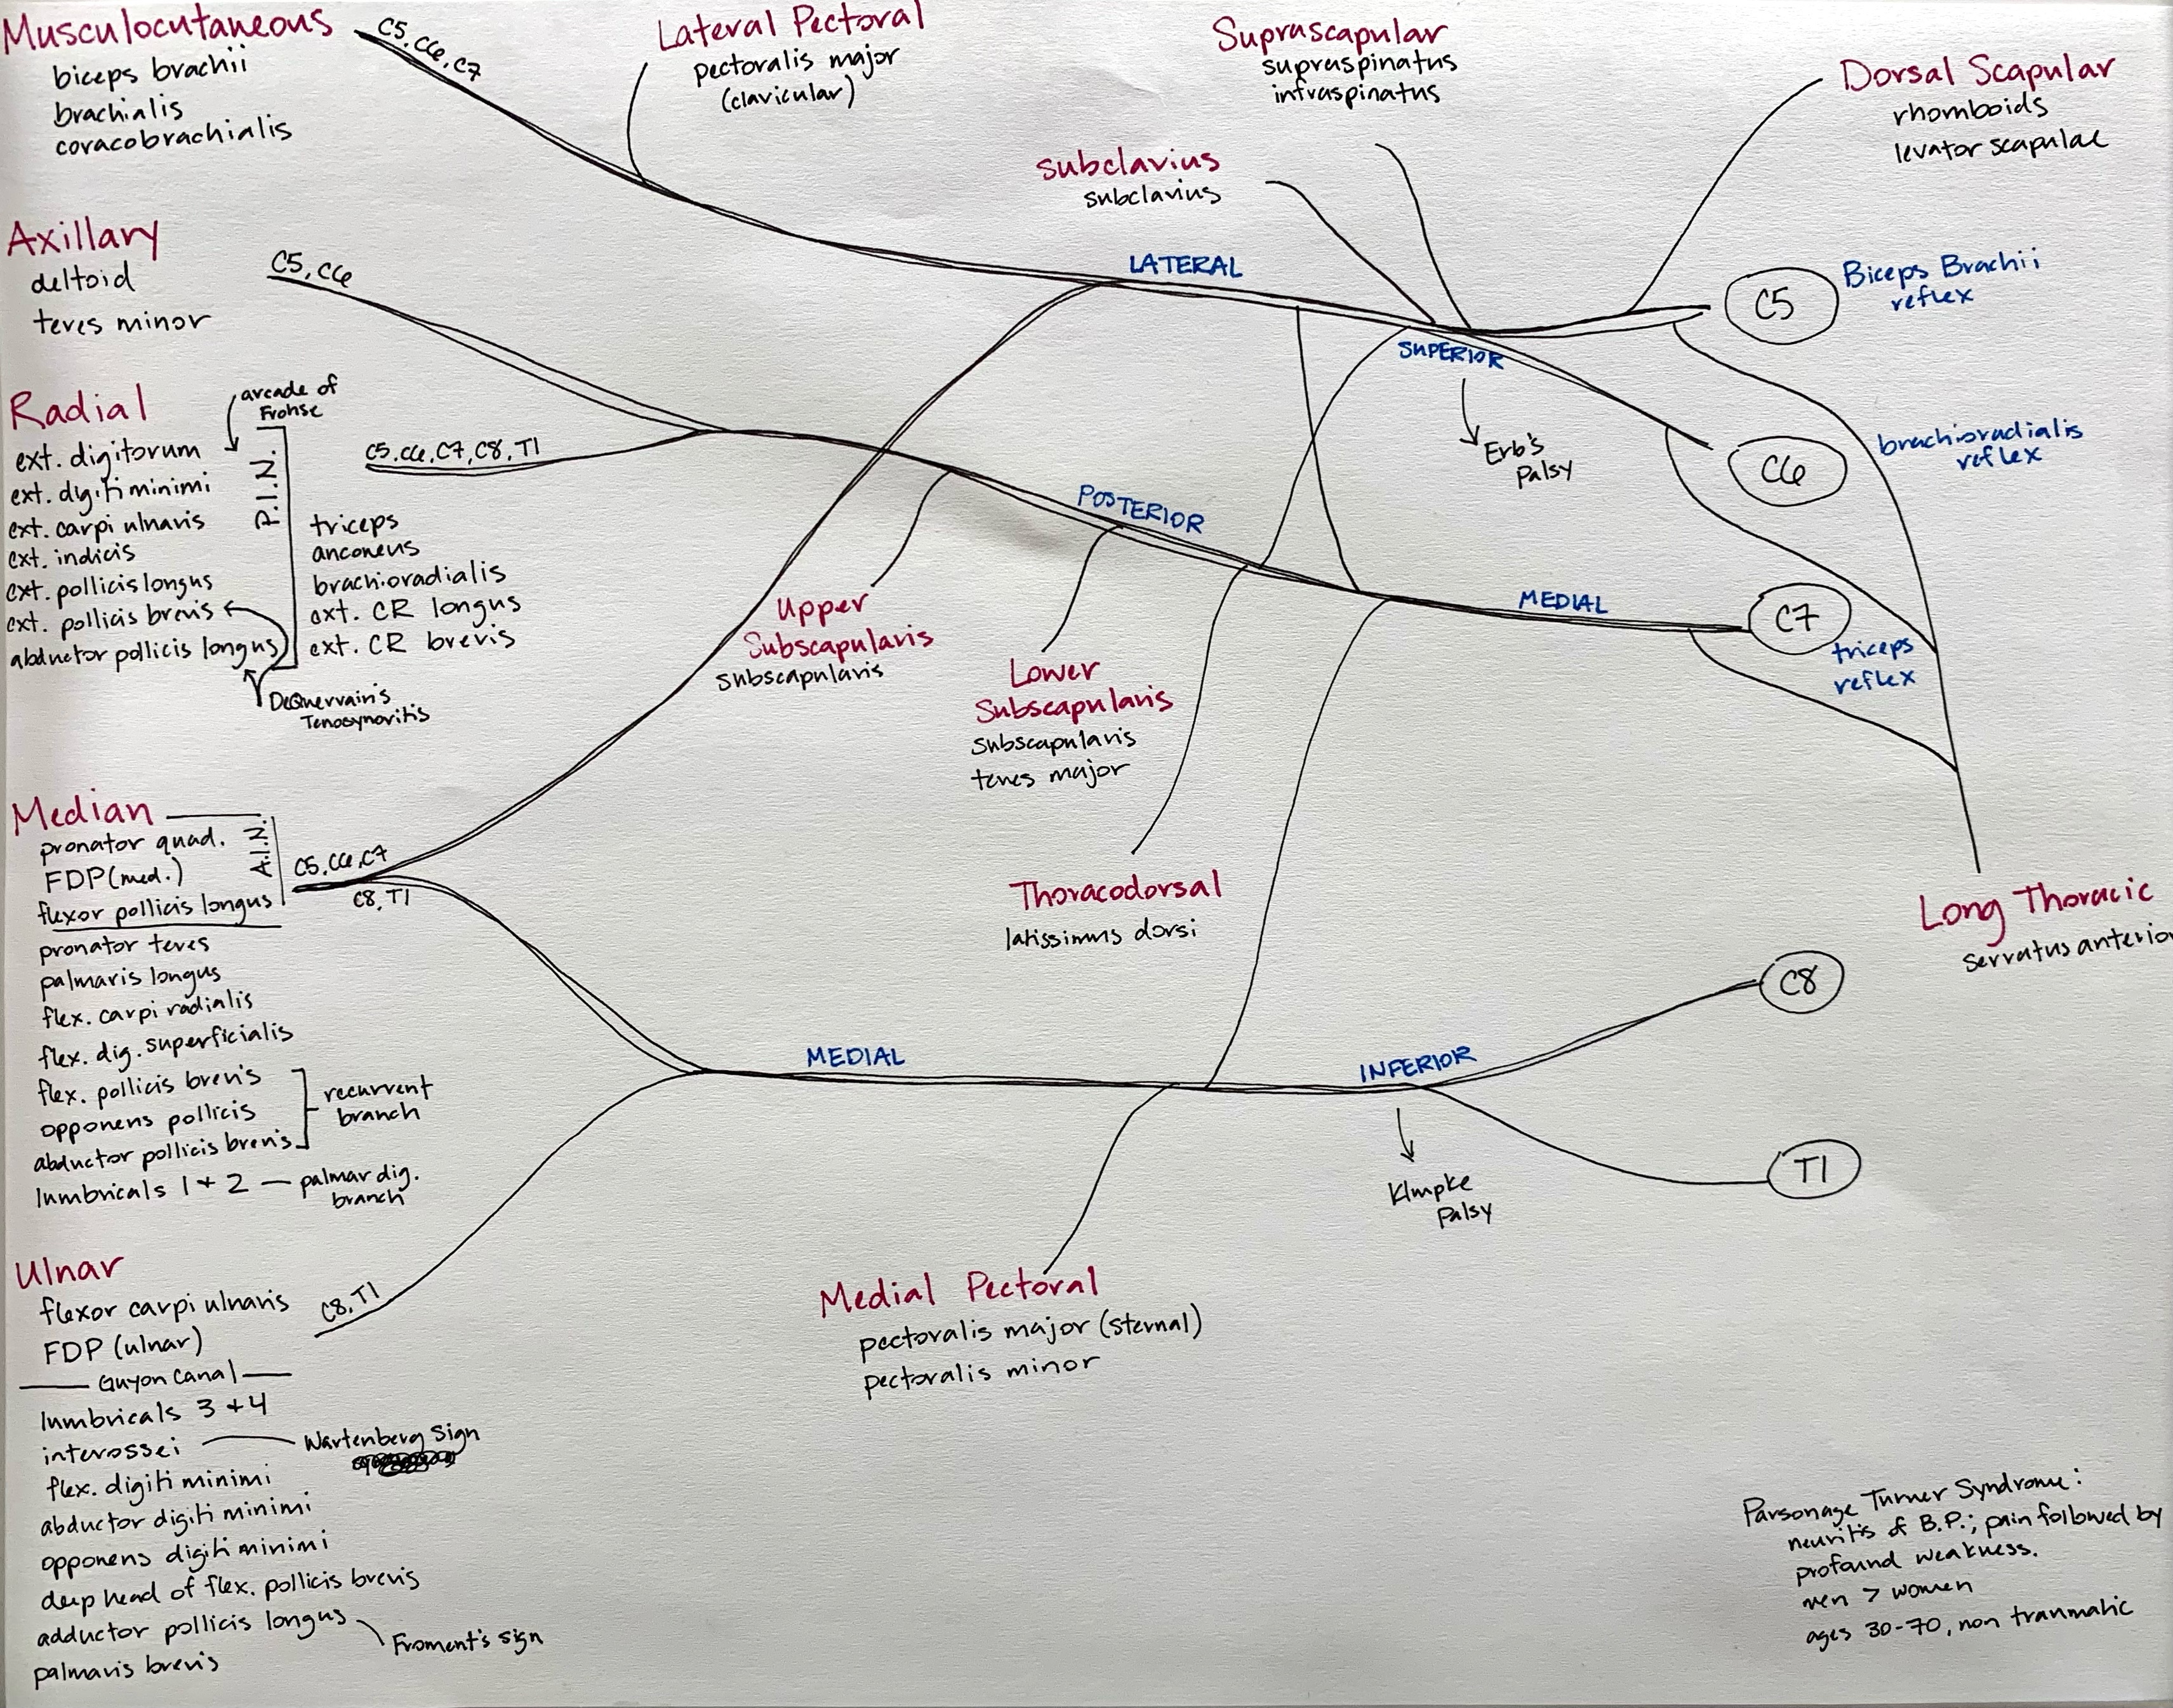 Musculocutaneous
biceps brachii
brachialis
coracobrachialis
C5, C6, C7
Lateral Pectoral
pectoralis major
(clavicular)
Suprascapular
supraspinatus
infraspinatus
subclavius
subclavius
Dorsal Scapular
rhomboids
levator scapulae
Axillary
deltoid
teres minor
C5, C6
LATERAL
SUPERIOR
Erb's
Palsy
C5
Biceps Brachii
reflex
C6
brachioradialis
reflex
Radial
arcade of
Frohse
ext. digitorum
ext. digiti minimi
ext. carpi ulnaris
ext. indicis
ext. pollicis longus
ext. pollicis brevis
abductor pollicis longus
P.I.N.
triceps
anconeus
brachioradialis
ext. CR longus
ext. CR brevis
DeQuervain's
Tenosynovitis
C5, C6, C7, C8, T1
POSTERIOR
MEDIAL
C7
triceps
reflex
Upper
Subscapularis
subscapularis
Lower
Subscapularis
subscapularis
teres major
Thoracodorsal
latissimus dorsi
Long Thoracic
serratus anterio
Median
pronator quad.
FDP (med.)
flexor pollicis longus
A.I.N.
pronator teres
palmaris longus
flex. carpi radialis
flex. dig. superficialis
flex. pollicis brevis
opponens pollicis
abductor pollicis brevis
recurrent
branch
lumbricals 1 + 2 — palmar dig.
branch
C5, C6, C7
C8, T1
MEDIAL
INFERIOR
Klmpke
Palsy
C8
T1
Medial Pectoral
pectoralis major (sternal)
pectoralis minor
Ulnar
flexor carpi ulnaris
FDP (ulnar)
Guyon Canal
lumbricals 3 + 4
interossei
Wartenberg Sign
flex. digiti minimi
abductor digiti minimi
opponens digiti minimi
deep head of flex. pollicis brevis
adductor pollicis longus
Froment's Sign
palmaris brevis
C8, T1
Parsonage Turner Syndrome:
neuritis of B.P.; pain followed by
profound weakness.
men > women
ages 30-70, non traumatic